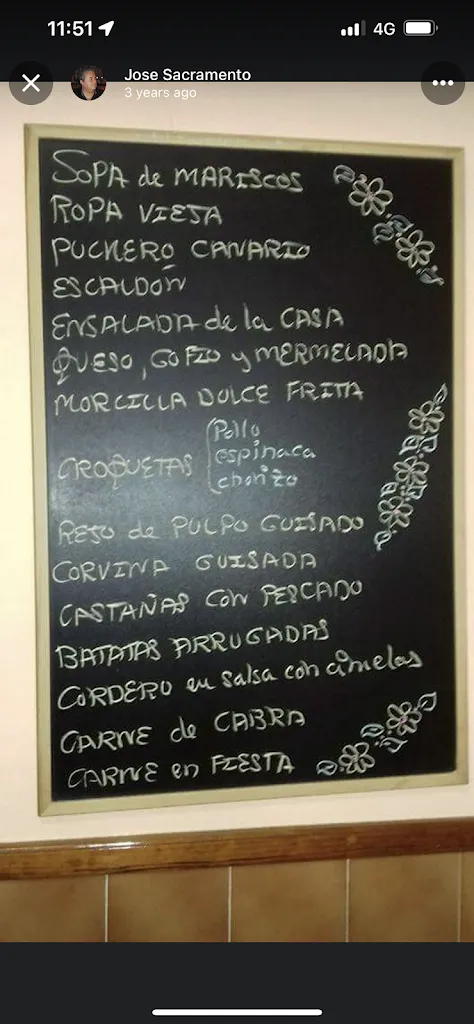 11:51
4G
Jose Sacramento
3 years ago
SOPA de MARISCOS
ROPA VIEJA
PUCHERO CANARIO
ESCALDÓN
ENSALADA de la CASA
QUESO, GOFIO y MERMELADA
MORCILLA DULCE FRITA
CROQUETAS
Pollo
espinaca
chorizo
REJO de PULPO GUISADO
CORVINA GUISADA
CASTAÑAS CON PESCADO
BATATAS ARRUGADAS
CORDERO en salsa con ciruelas
CARNE de CABRA
CARNE en FIESTA